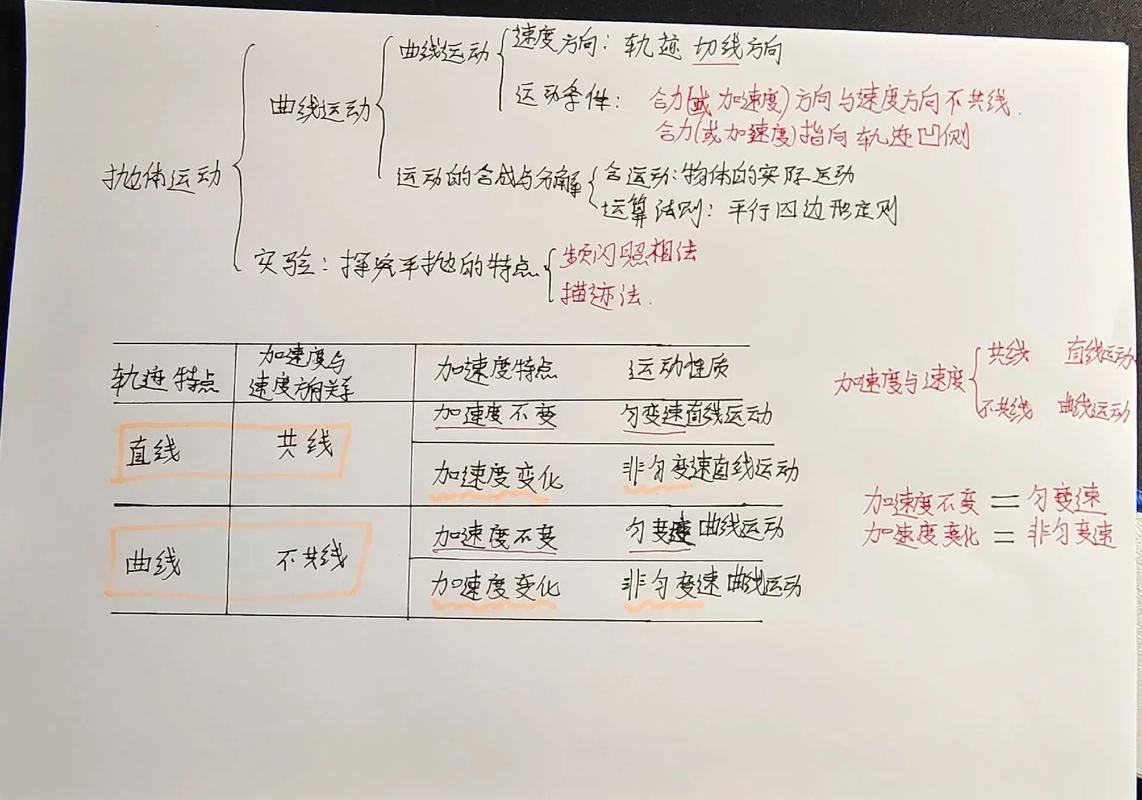 曲线运动 速度方向：轨迹 切线方向
曲线运动 运动条件： 合力(或加速度)方向与速度方向不共线.
合力(或加速度)指向轨迹凹侧
抛体运动 运动的合成与分解 合运动:物体的实际运动
运算法则：平行四边形定则
实验：探究平抛的特点 频闪照相法
描迹法.
轨迹特点 加速度与速度方向关系 加速度特点 运动性质
直线 共线 加速度不变 匀变速直线运动
加速度变化 非匀变速直线运动
曲线 不共线 加速度不变 匀变速曲线运动
加速度变化 非匀变速曲线运动
加速度与速度 共线 直线运动
不共线 曲线运动
加速度不变 = 匀变速
加速度变化 = 非匀变速